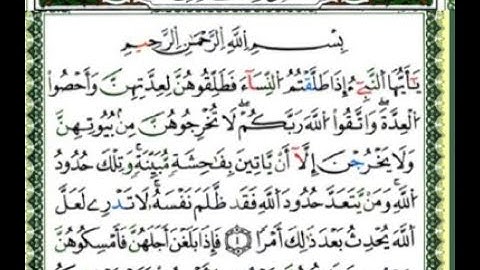 بِسْمِ اللَّهِ الرَّحْمَٰنِ الرَّحِيمِ
يَٰٓأَيُّهَا النَّبِےٓءُ إِذَا طَلَّقْتُمُ النِّسَآءَ فَطَلِّقُوهُنَّ لِعِدَّتِهِنَّ وَأَحْصُوا
الْعِدَّةَ وَاتَّقُوا اللَّهَ رَبَّكُمْ لَا تُخْرِجُوهُنَّ مِنۢ بُيُوتِهِنَّ
وَلَا يَخْرُجْنَ إِلَّآ أَنْ يَّاتِينَ بِفَٰحِشَةٍ مُّبَيِّنَةٍ وَتِلْكَ حُدُودُ
اللَّهِ وَمَنْ يَّتَعَدَّ حُدُودَ اللَّهِ فَقَد ظَّلَمَ نَفْسَهُۥ لَا تَدْرِے لَعَلَّ
اللَّهَ يُحْدِثُ بَعْدَ ذَٰلِكَ أَمْرًا ١ فَإِذَا بَلَغْنَ أَجَلَهُنَّ فَأَمْسِكُوهُنَّ